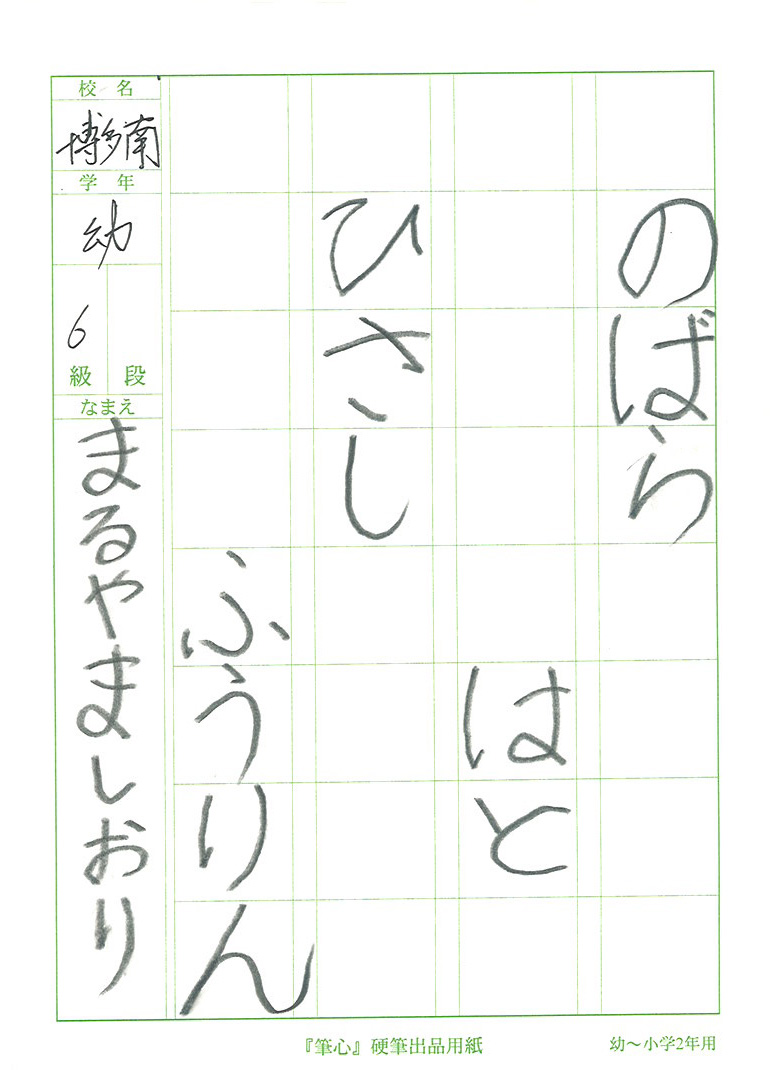 のばら
はと
ひさし
ふうりん
校名
博多南
学年
幼
6
級 段
なまえ
まるやましおり
『筆心』硬筆出品用紙
幼～小学2年用